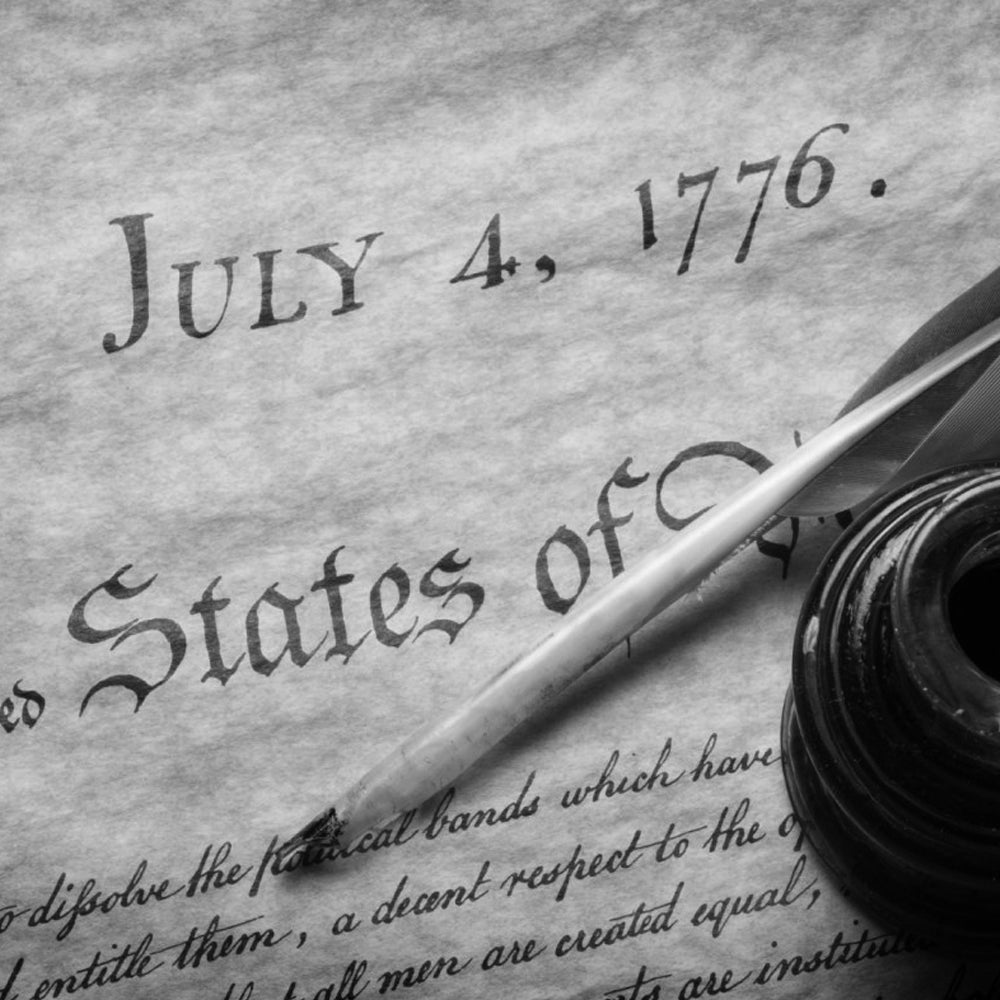 JULY 4, 1776.
ed States of
o diſsolve the political bands which have
d entitle them, a decent respect to the o
that all men are created equal,
nts are instituted